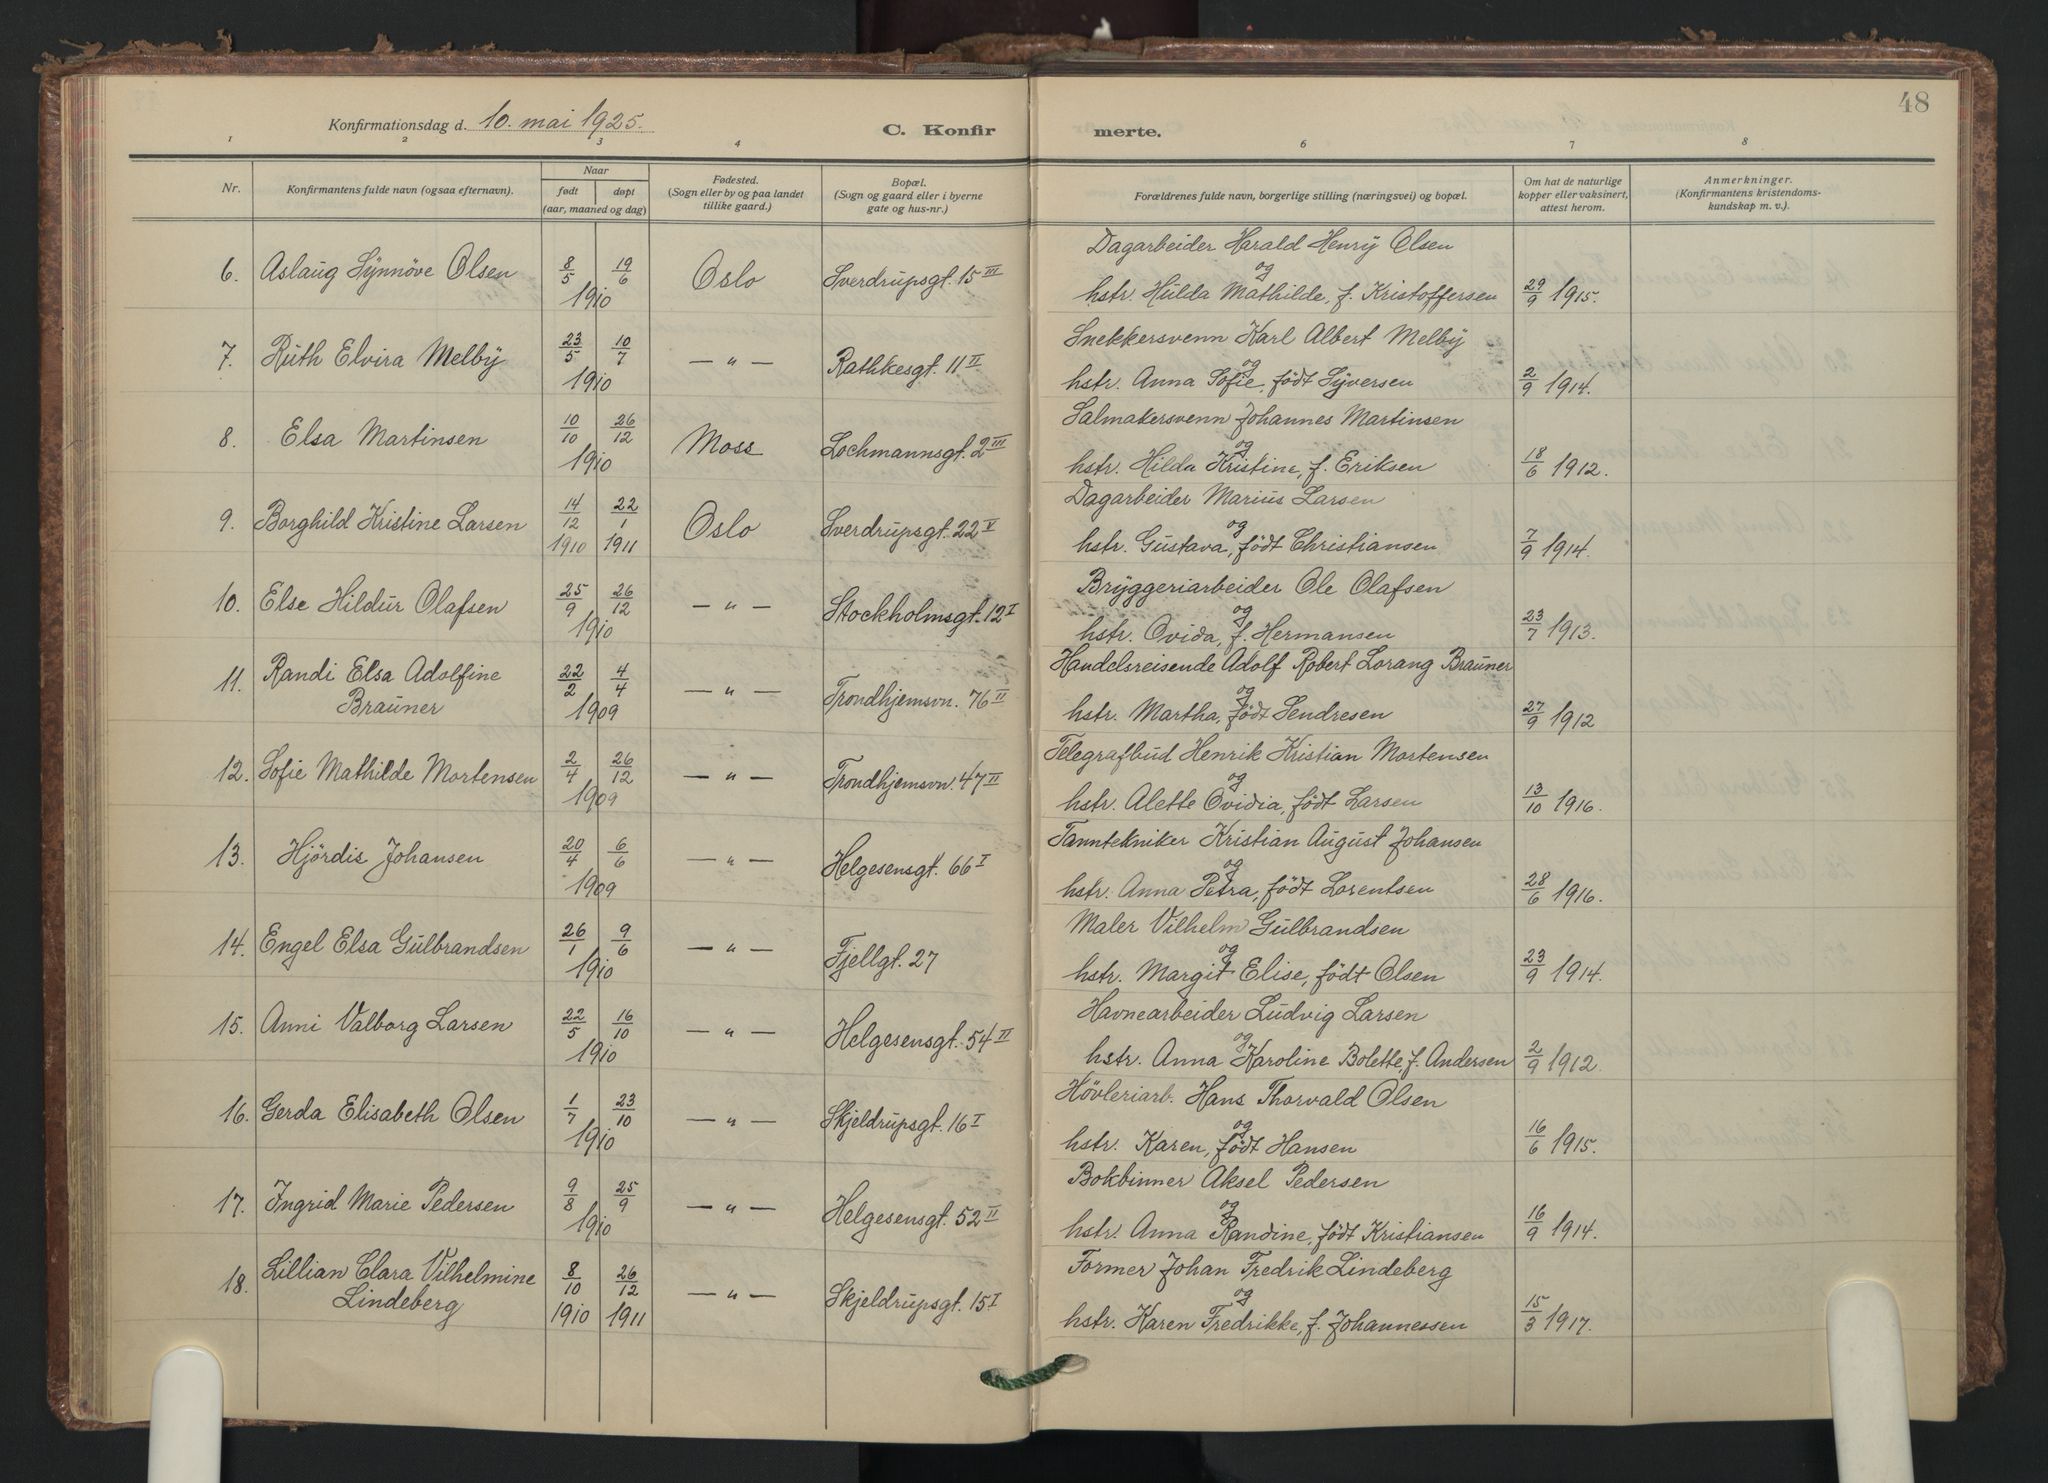 48
Konfirmationsdag d. 10. mai 1925.
C. Konfir
merte.
1 2 3 4 6 7 8
Nr.
Konfirmantens fulde navn (ogsaa efternavn).
Naar
født
døpt
(aar, maaned og dag)
Fødested.
(Sogn eller by og paa landet
tillike gaard.)
Bopæl.
(Sogn og gaard eller i byerne
gate og hus-nr.)
Forældrenes fulde navn, borgerlige stilling (næringsvei) og bopæl.
Om hat de naturlige
kopper eller vaksinert,
attest herom.
Anmerkninger.
(Konfirmantens kristendoms-
kundskap m. v.).
6. Aslaug Synnöve Olsen 8/5 19/6 1910 Oslo Sverdrupsgt. 15 III
Dagarbeider Harald Henry Olsen
og
hstr. Hulda Mathilde, f. Kristoffersen 29/9 1915.
7. Ruth Elvira Melby 23/5 10/7 1910 — " — Rathkesgt. 11 II
Snekkersvenn Karl Albert Melby
og
hstr. Anna Sofie, födt Syversen 2/9 1914.
8. Elsa Martinsen 10/10 26/12 1910 Moss Lochmannsgt. 2 III
Salmakersvenn Johannes Martinsen
og
hstr. Hilda Kristine, f. Eriksen 18/6 1912.
9. Borghild Kristine Larsen 14/12 1910 22/1 1911 Oslo Sverdrupsgt. 22 V
Dagarbeider Marius Larsen
og
hstr. Gustava, födt Christiansen 7/9 1914.
10. Else Hildur Olafsen 25/9 26/12 1910 — " — Stockholmsgt. 12 I
Bryggeriarbeider Ole Olafsen
og
hstr. Ovida, f. Hermansen 23/7 1913.
11. Randi Elsa Adolfine
Brauner 22/2 4/4 1909 — " — Trondhjemsvn. 76 II
Handelsreisende Adolf Robert Lorang Brauner
og
hstr. Martha, födt Sendresen 27/9 1912
12. Sofie Mathilde Mortensen 2/4 26/12 1909 — " — Trondhjemsvn. 47 II
Telegrafbud Henrik Kristian Mortensen
og
hstr. Alette Ovidia, födt Larsen 13/10 1916.
13. Hjördis Johansen 20/4 6/6 1909 — " — Helgesensgt. 66 I
Tanntekniker Kristian August Johansen
og
hstr. Anna Petra, födt Lorentsen 28/6 1916.
14. Engel Elsa Gulbrandsen 26/1 9/6 1910 — " — Fjellgt. 27
Maler Vilhelm Gulbrandsen
og
hstr. Margit Elise, födt Olsen 23/9 1914.
15. Anni Valborg Larsen 22/5 16/10 1910 — " — Helgesensgt. 54 II
Havnearbeider Ludvig Larsen
og
hstr. Anna Karoline Bolette, f. Andersen 2/9 1912.
16. Gerda Elisabeth Olsen 1/7 23/10 1910 — " — Skjeldrupsgt. 16 I
Hövleriarb. Hans Thorvald Olsen
og
hstr. Karen, födt Hansen 16/6 1915.
17. Ingrid Marie Pedersen 9/8 25/9 1910 — " — Helgesensgt. 52 II
Bokbinner Aksel Pedersen
og
hstr. Anna Randine, födt Kristiansen 16/9 1914.
18. Lillian Clara Vilhelmine
Lindeberg 8/10 1910 26/12 1911 — " — Skjeldrupsgt. 15 I
Former Johan Fredrik Lindeberg
og
hstr. Karen Fredrikke, f. Johannessen 15/3 1917.